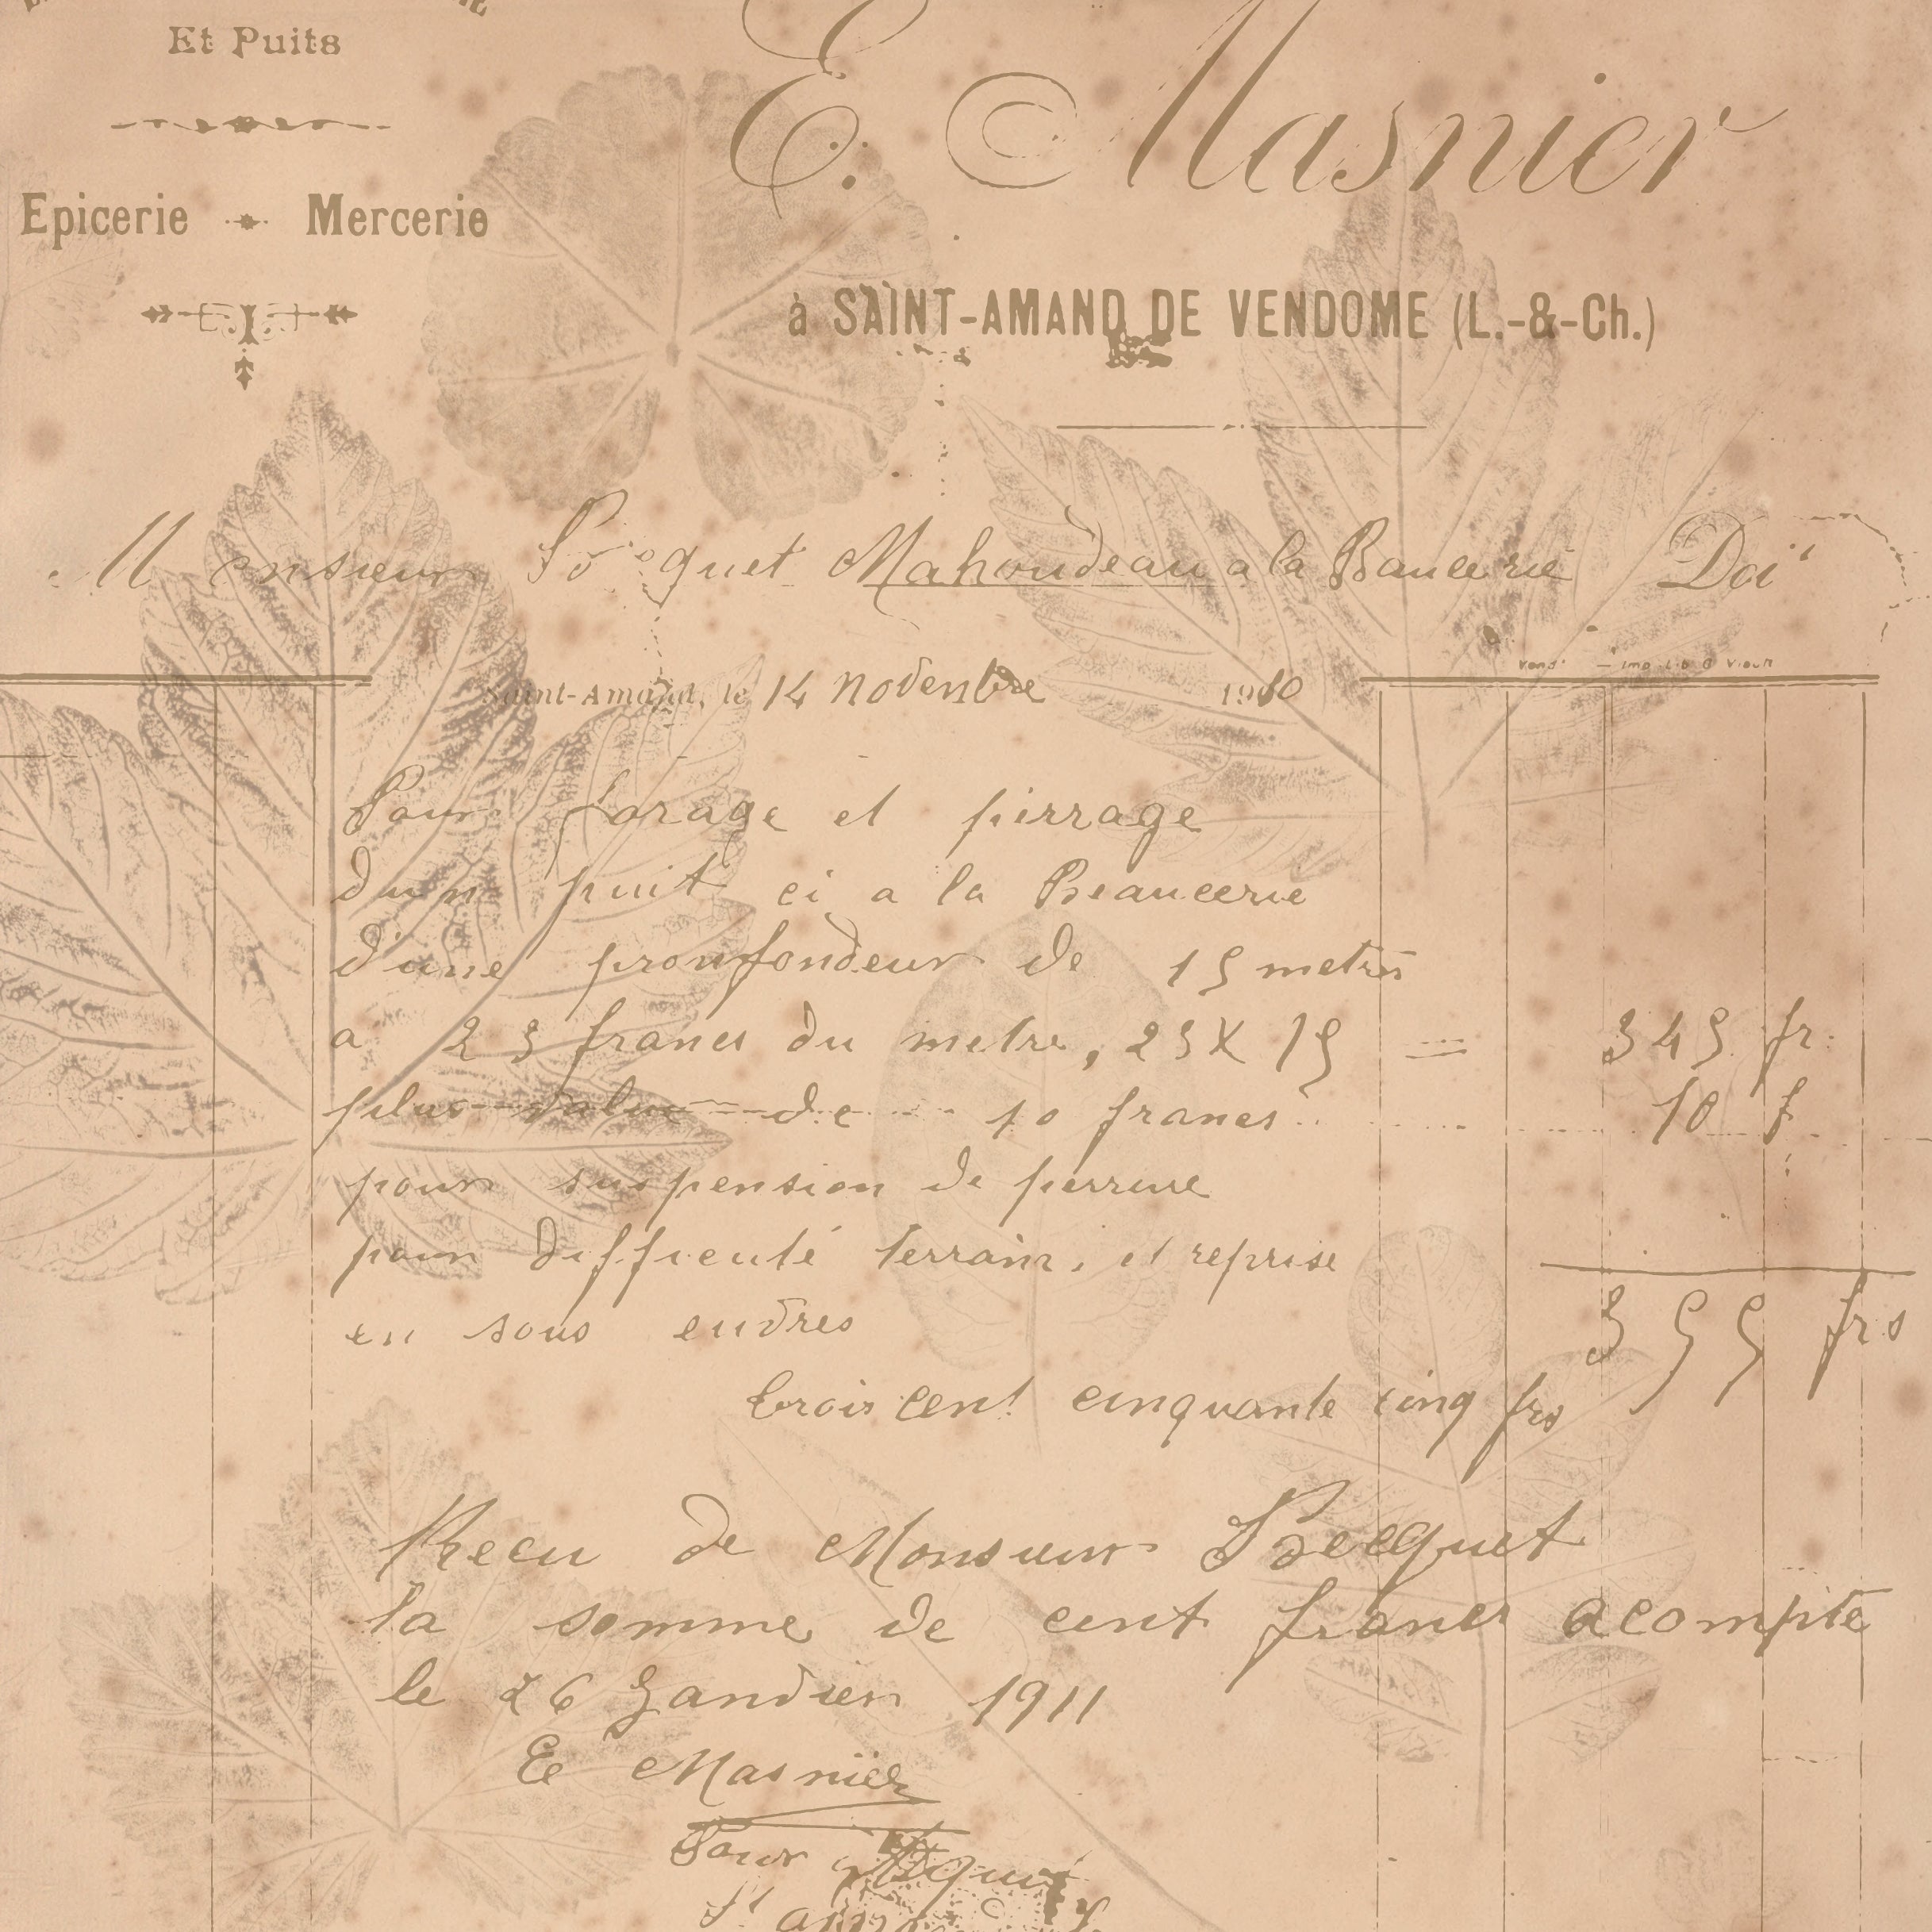 Et Puits
E. Masnier
Epicerie Mercerie
à SAINT-AMAND DE VENDOME (L.-&-Ch.)
Monsieur Bocquet Mahoudeau a la Baucerie Doit
Vendˢ — Imp. Lib. G. Vieur
Saint-Amand, le 14 novembre 1910
Pour forage et pirrage
dun puit ci a la Beaucerie
d'une proufondeur de 15 metres
a 23 francs du metre, 23 X 15 = 345 fr.
plus value de 10 francs 10 f
pour suspension de perrure
pour difficuté terrain, et reprise
en sous eudres
355 frs
trois cent cinquante cinq frs
Recu de Monsieur Bocquet
la somme de cent francs acompte
le 26 Janvier 1911
E Masnier
Pour
St